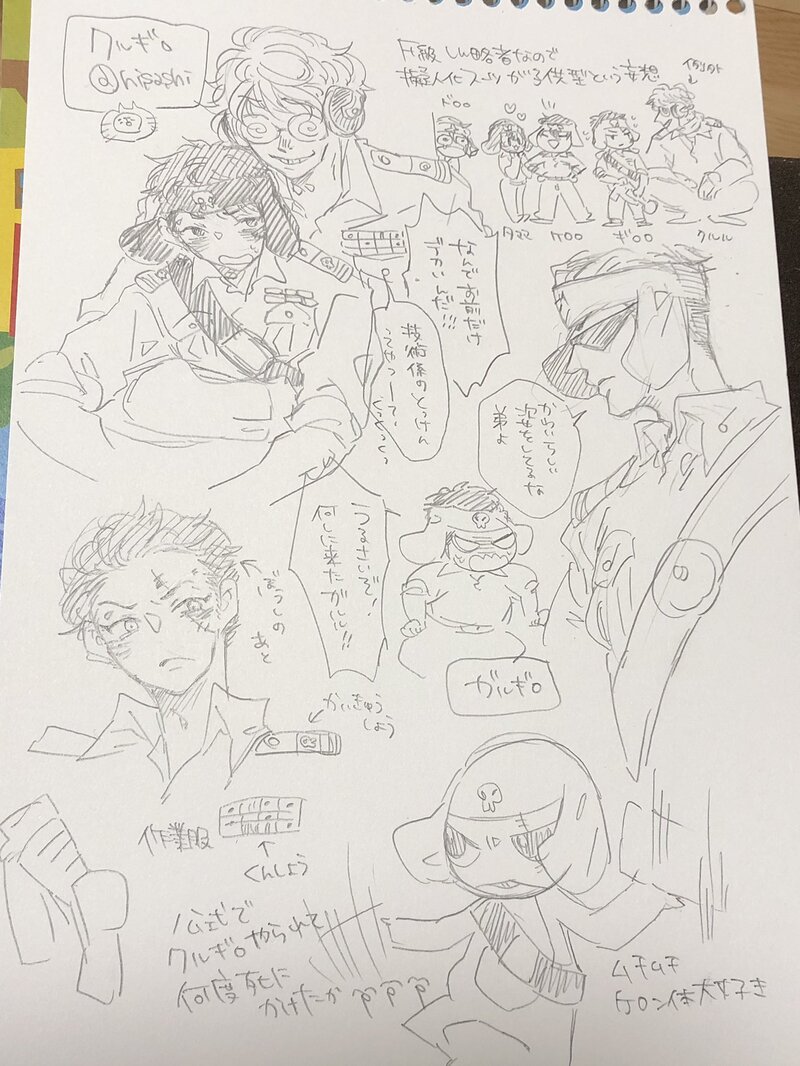 クルギロ
@hisashi
F級しん略者なので
擬人化スーツが子供型という妄想
ドロロ
タママ
ケロロ
ギロロ
クルル
なんでお前だけ
デカいんだ!!!
技術係のとっけん
ってやつ
くっくっくっ
かわいらしい
姿をしてるな
弟よ
うるさいぞ!
何しに来たガルル!!
ぼうしの
あと
ガルギロ
かいきゅう
しょう
作業服
くんしょう
公式で
クルギロやられて
何度死に
かけたか
ムチムチ
ケロン体大好き